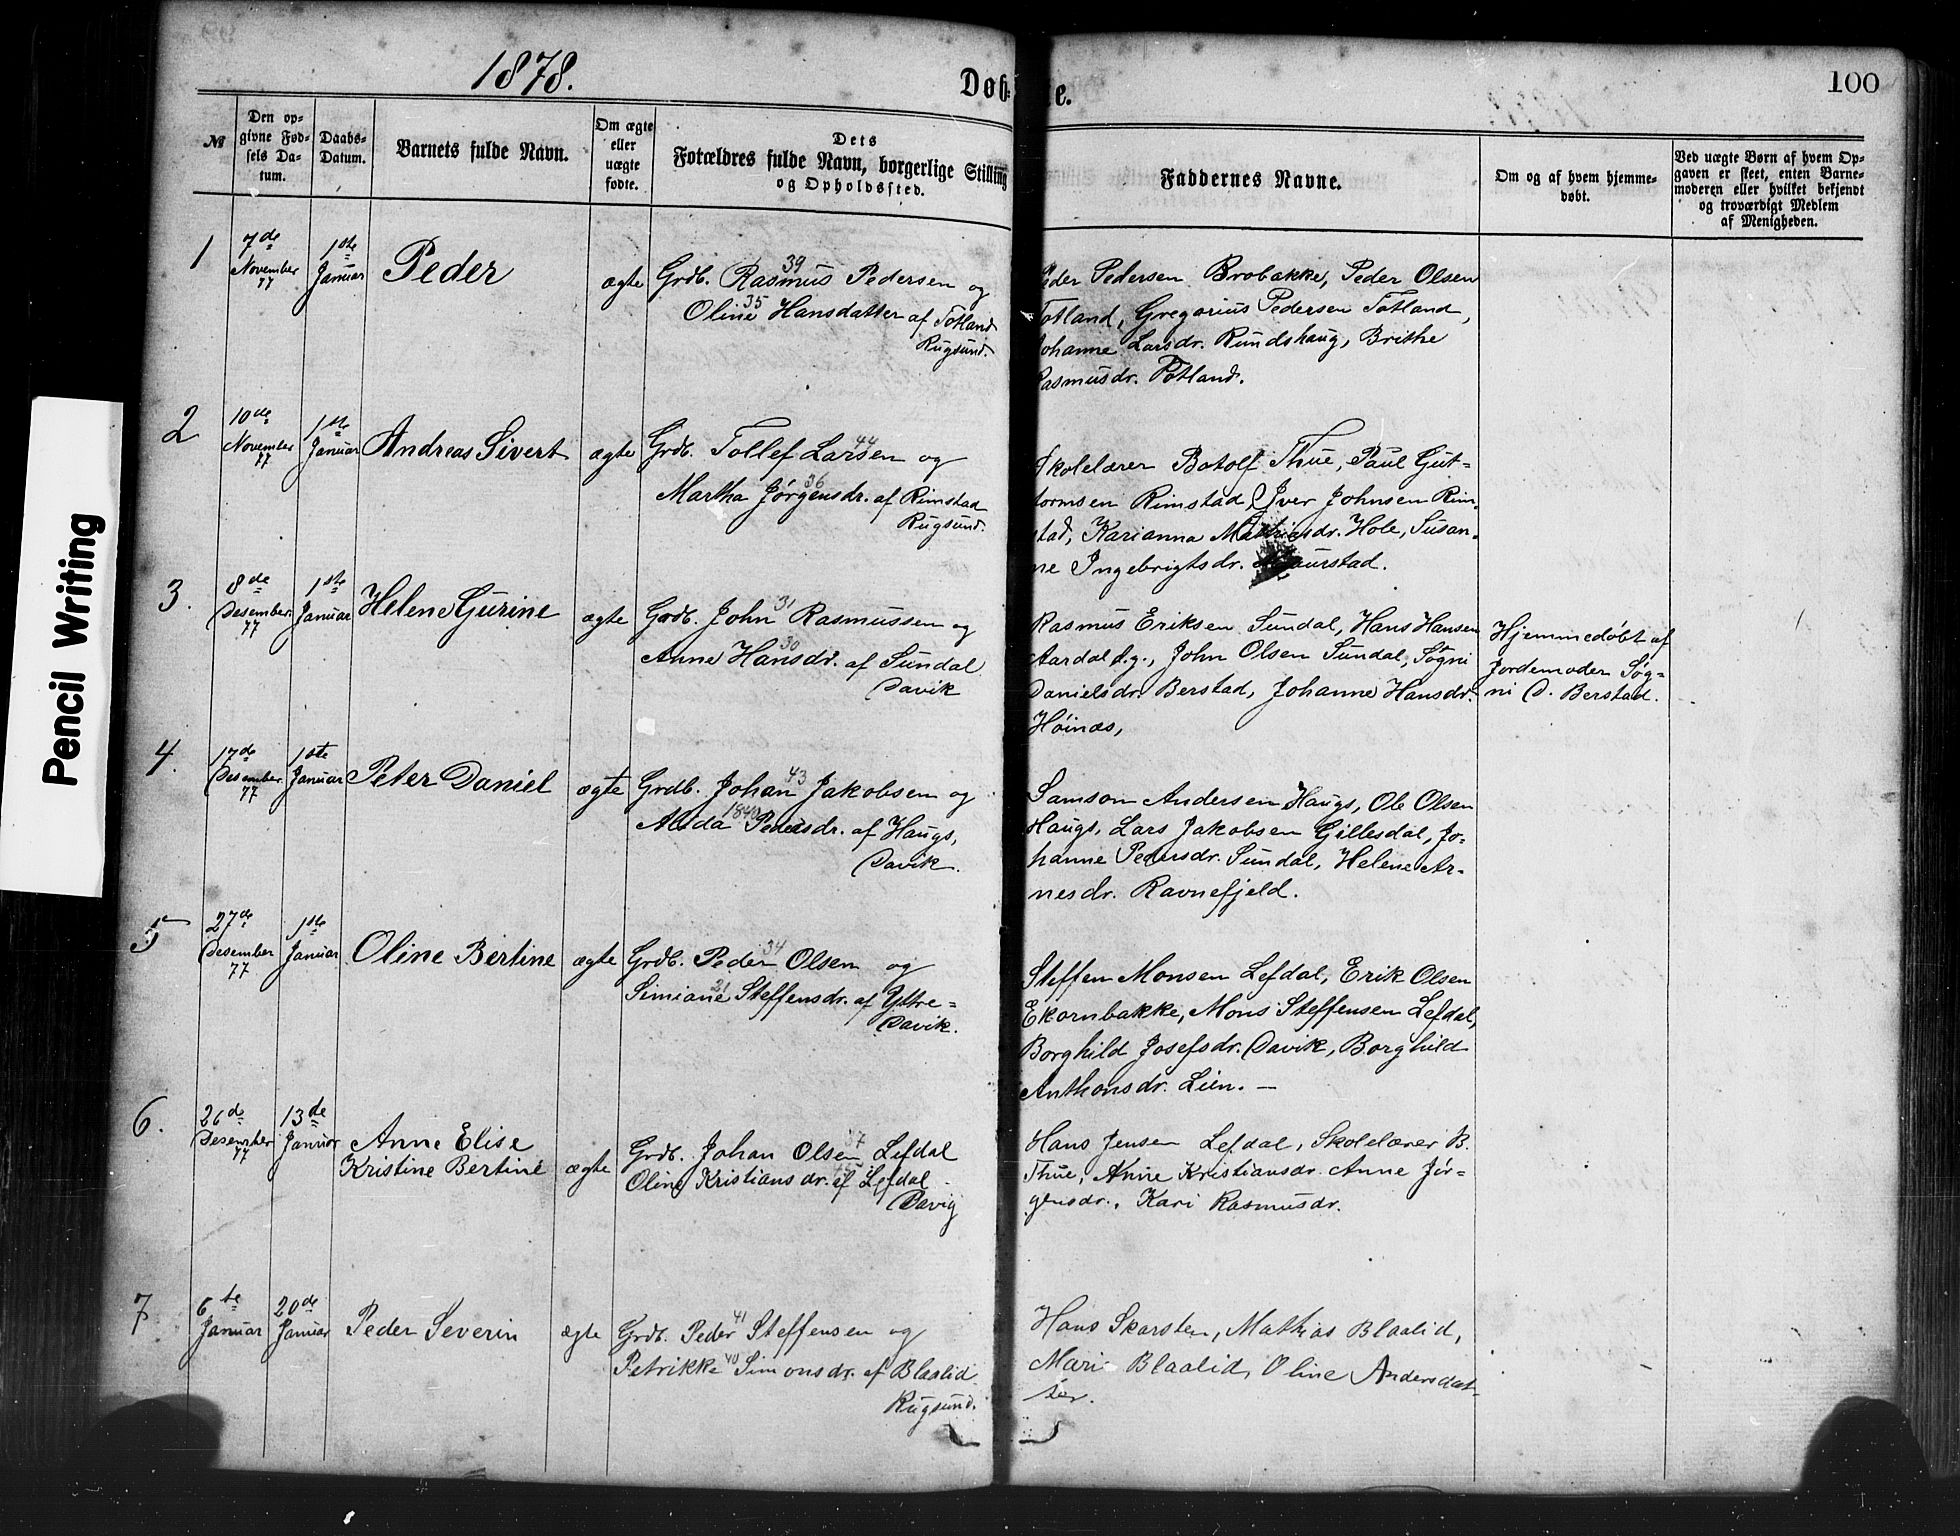 1878.
Døb-
te.
100
№
Den op-
givne Fød-
sels Da-
tum.
Daabs-
Datum.
Barnets fulde Navn.
Om ægte
eller
uægte
fødte.
Dets
Forældres fulde Navn, borgerlige Stilling
og Opholdssted.
Faddernes Navne.
Om og af hvem hjemme-
døbt.
Ved uægte Børn af hvem Op-
gaven er skeet, enten Barne-
moderen eller hvilket bekjendt
og troværdigt Medlem
af Menigheden.
1
7de
November
77
1ste
Januar
Peder
ægte
39
Grdb. Rasmus Pedersen og
35
Oline Hansdatter af Totland
Rugsund.
Peder Pedersen Brobakke, Peder Olsen
Totland, Gregorius Pedersen Totland,
Johanne Larsdr. Rundshaug, Brithe
Rasmusdr. Totland.
2
10de
November
77
1ste
Januar
Andreas Sivert
ægte
44
Grdb. Tollef Larsen og
36
Martha Jørgensdr. af Rimstad
Rugsund.
Skolelærer Botolf Thue, Paul Gut-
tormsen Rimstad, Iver Johnsen Rim-
stad, Karianna Mathiasdr. Hole, Susan-
ne Ingebrigtsdr. Maurstad.
3.
8de
Desember
77
1ste
Januar
Helene Gurine
ægte
31
Grdb. John Rasmussen og
30
Anne Hansdr. af Sundal
Davik
Rasmus Eriksen Sundal, Hans Hansen
Aardal d.y., John Olsen Sundal, Søgni
Danielsdr. Berstad, Johanne Hansdr.
Høinæs,
Hjemmedøbt af
Jordemoder Søg-
ni D. Berstad.
4.
17de
Desember
77
1ste
Januar
Peter Daniel
ægte
43
Grdb. Johan Jakobsen og
1840
Alida Pedersdr. af Haugs,
Davik.
Samson Andersen Haugs, Ole Olsen
Haugs, Lars Jakobsen Gillesdal, Jo-
hanne Pedersdr. Sundal, Helene Ar-
nesdr. Ravnefjeld.
5
27de
Desember
77
1ste
Januar
Oline Bertine
ægte
34
Grdb. Peder Olsen og
21
Simiane Steffensdr. af Yttre-
Davik.
Steffen Monsen Lefdal, Erik Olsen
Ekornbakke, Mons Steffensen Lefdal,
Borghild Josefsdr. Davik, Borghild
Anthonsdr. Lien. —
6.
26de
Desember
77
13de
Januar
Anne Elise
Kristine Bertine
ægte
37
Grdb. Johan Olsen Lefdal
Oline Kristiansdr. af Lefdal
Davig
Hans Jensen Lefdal, Skolelærer B.
Thue, Anne Kristiansdr. Anne Jør-
gensdr., Kari Rasmusdr.
7
6te
Januar
20de
Januar
Peder Severin
ægte
41
Grdb. Peder Steffensen og
40
Petrikke Simonsdr. af Blaalid
Rugsund.
Hans Skarsten, Mathias Blaalid,
Mari Blaalid, Oline Andersdat-
ter.
Pencil Writing